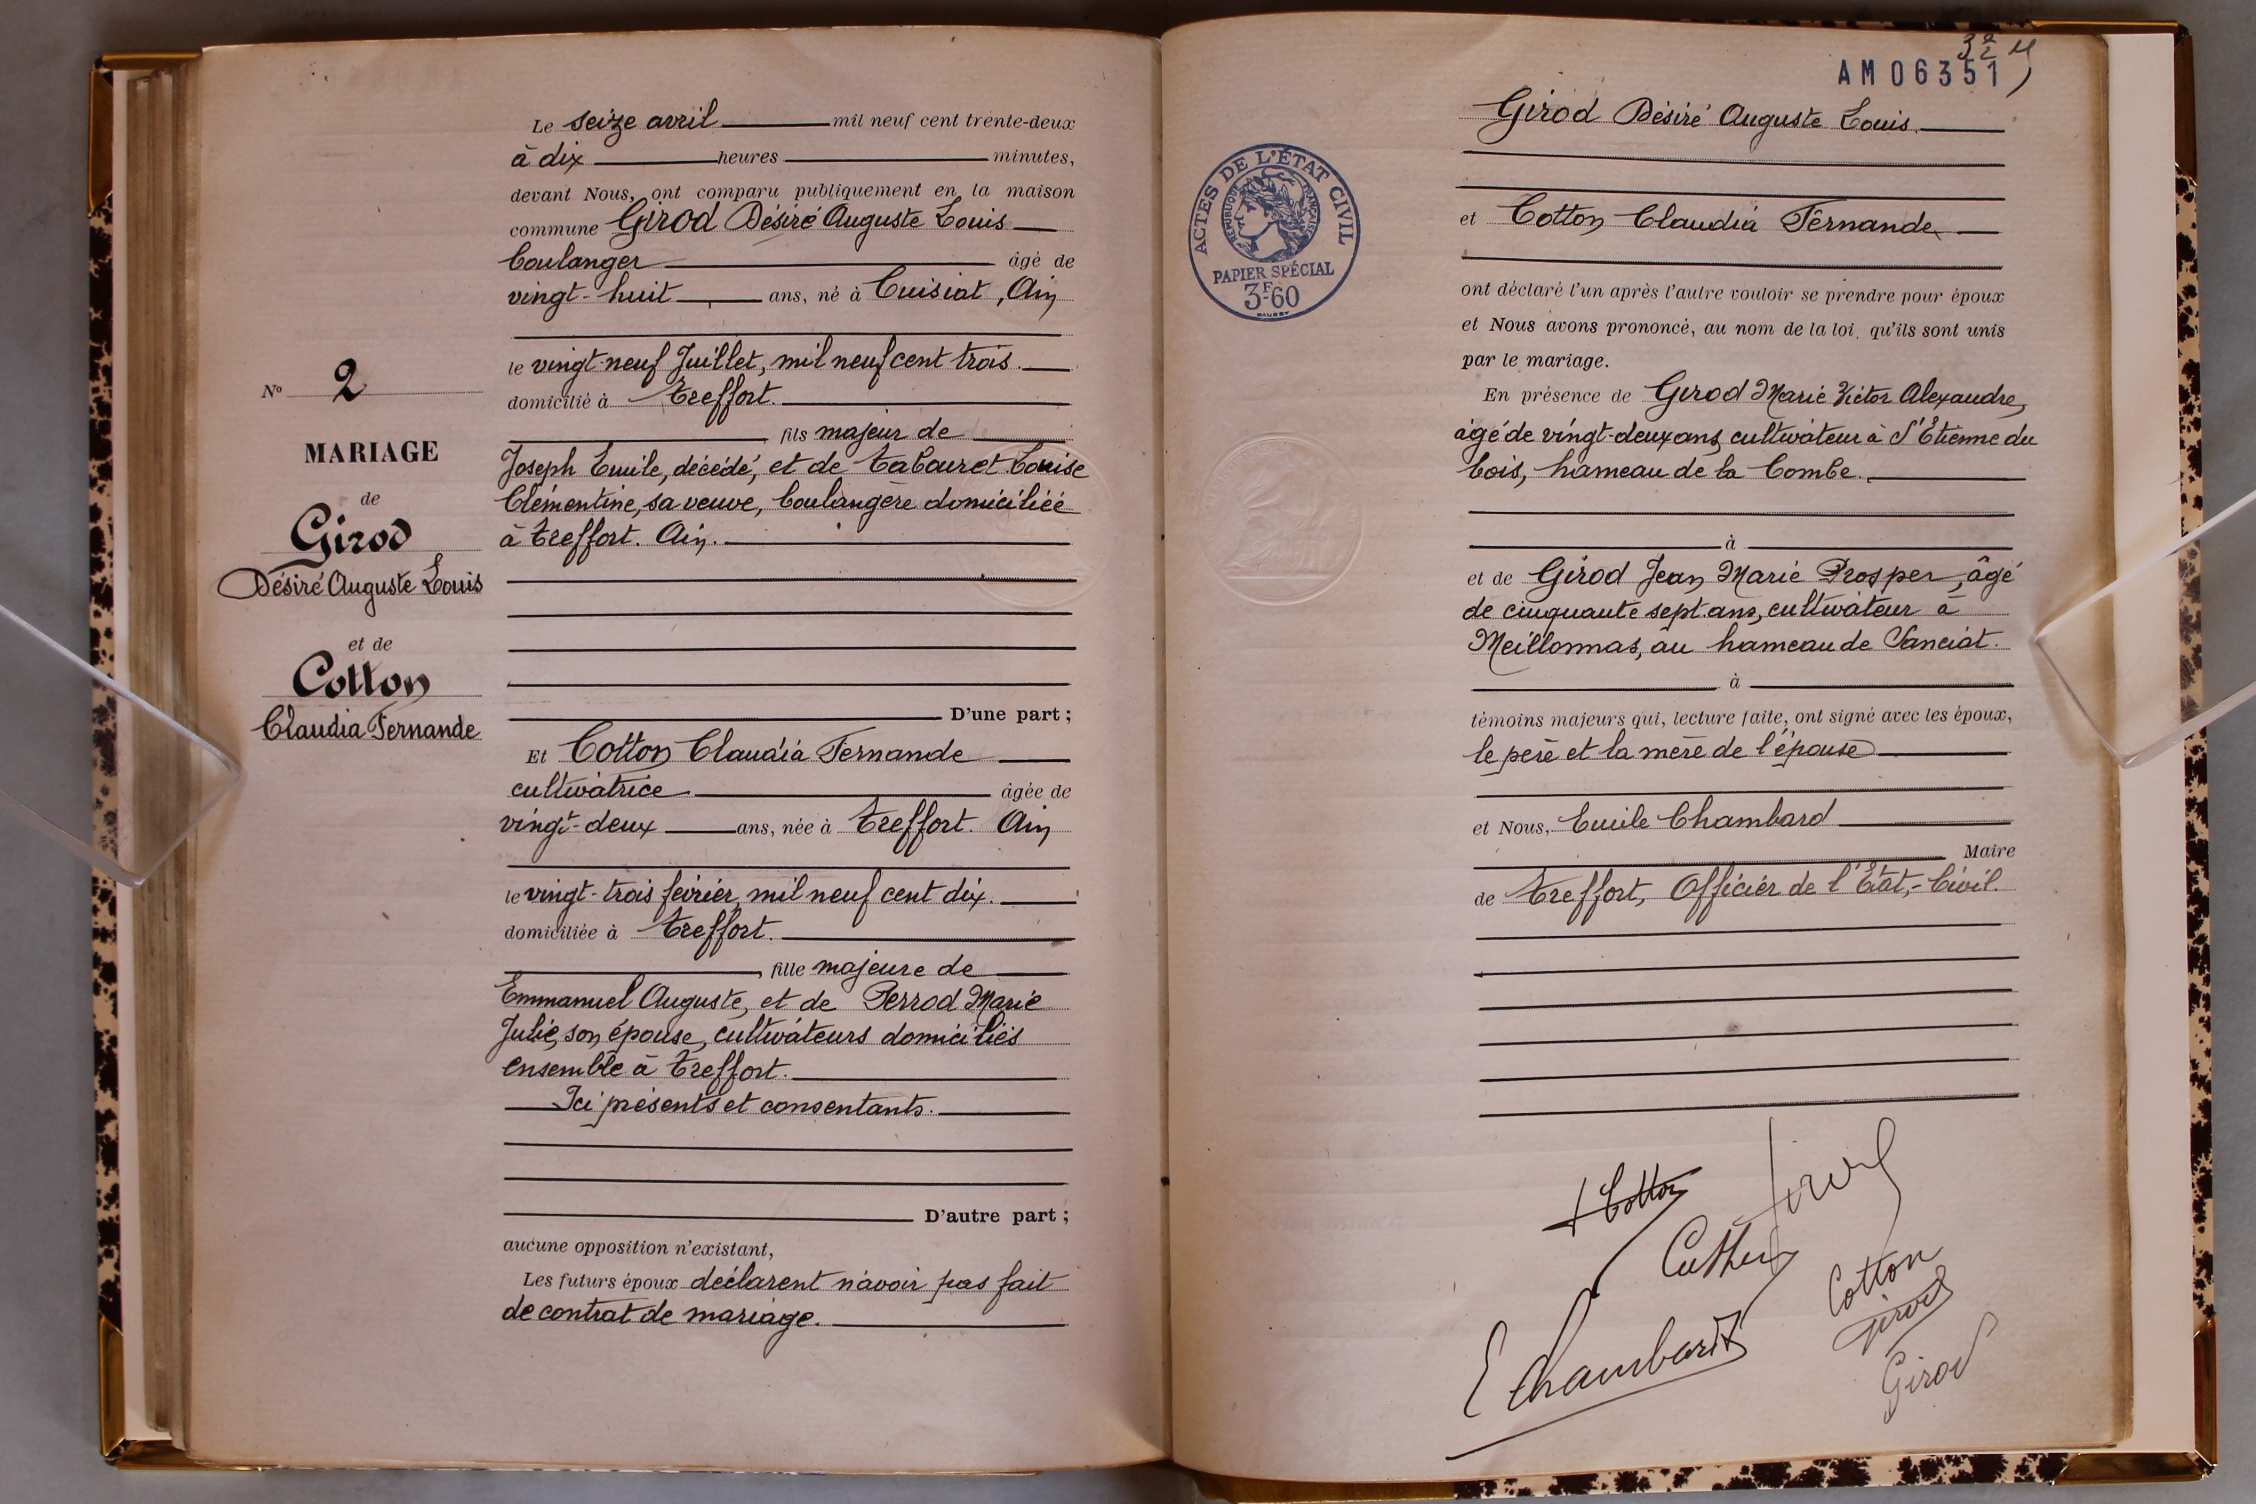 Le seize avril mil neuf cent trente-deux
à dix heures minutes,
devant Nous, ont comparu publiquement en la maison
commune Girod Désiré Auguste Louis
boulanger âgé de
vingt-huit ans, né à Cuisiat, Ain
le vingt-neuf Juillet, mil neuf cent trois.
domicilié à Treffort.
fils majeur de
Joseph Emile, décédé, et de Tabouret Louise
Clémentine, sa veuve, boulangère domiciliée
à Treffort. Ain.
D'une part ;
Et Cotton Claudia Fernande
cultivatrice âgée de
vingt-deux ans, née à Treffort. Ain
le vingt-trois février, mil neuf cent dix.
domiciliée à Treffort.
fille majeure de
Emmanuel Auguste, et de Perrod Marie
Julie, son épouse, cultivateurs domiciliés
ensemble à Treffort.
Ici présents et consentants.
D'autre part ;
aucune opposition n'existant,
Les futurs époux déclarent n'avoir pas fait
de contrat de mariage.
N° 2
MARIAGE
de
Girod
Désiré Auguste Louis
et de
Cotton
Claudia Fernande
AM06351
ACTES DE L'ÉTAT CIVIL
RÉPUBLIQUE FRANÇAISE
PAPIER SPÉCIAL
3F-60
Girod Désiré Auguste Louis
et Cotton Claudia Fernande
ont déclaré l'un après l'autre vouloir se prendre pour époux
et Nous avons prononcé, au nom de la loi, qu'ils sont unis
par le mariage.
En présence de Girod Marie Victor Alexandre,
âgé de vingt-deux ans, cultivateur à St Etienne du
bois, hameau de la Combe.
à
et de Girod Jean Marie Prosper, âgé
de cinquante sept ans, cultivateur à
Meillonnas, au hameau de Sanciat.
à
témoins majeurs qui, lecture faite, ont signé avec les époux,
le père et la mère de l'épouse
et Nous, Emile Chambard
Maire
de Treffort, Officier de l'Etat-Civil.
Cotton
Girod
Cotton
Girod
Girod
E Chambard